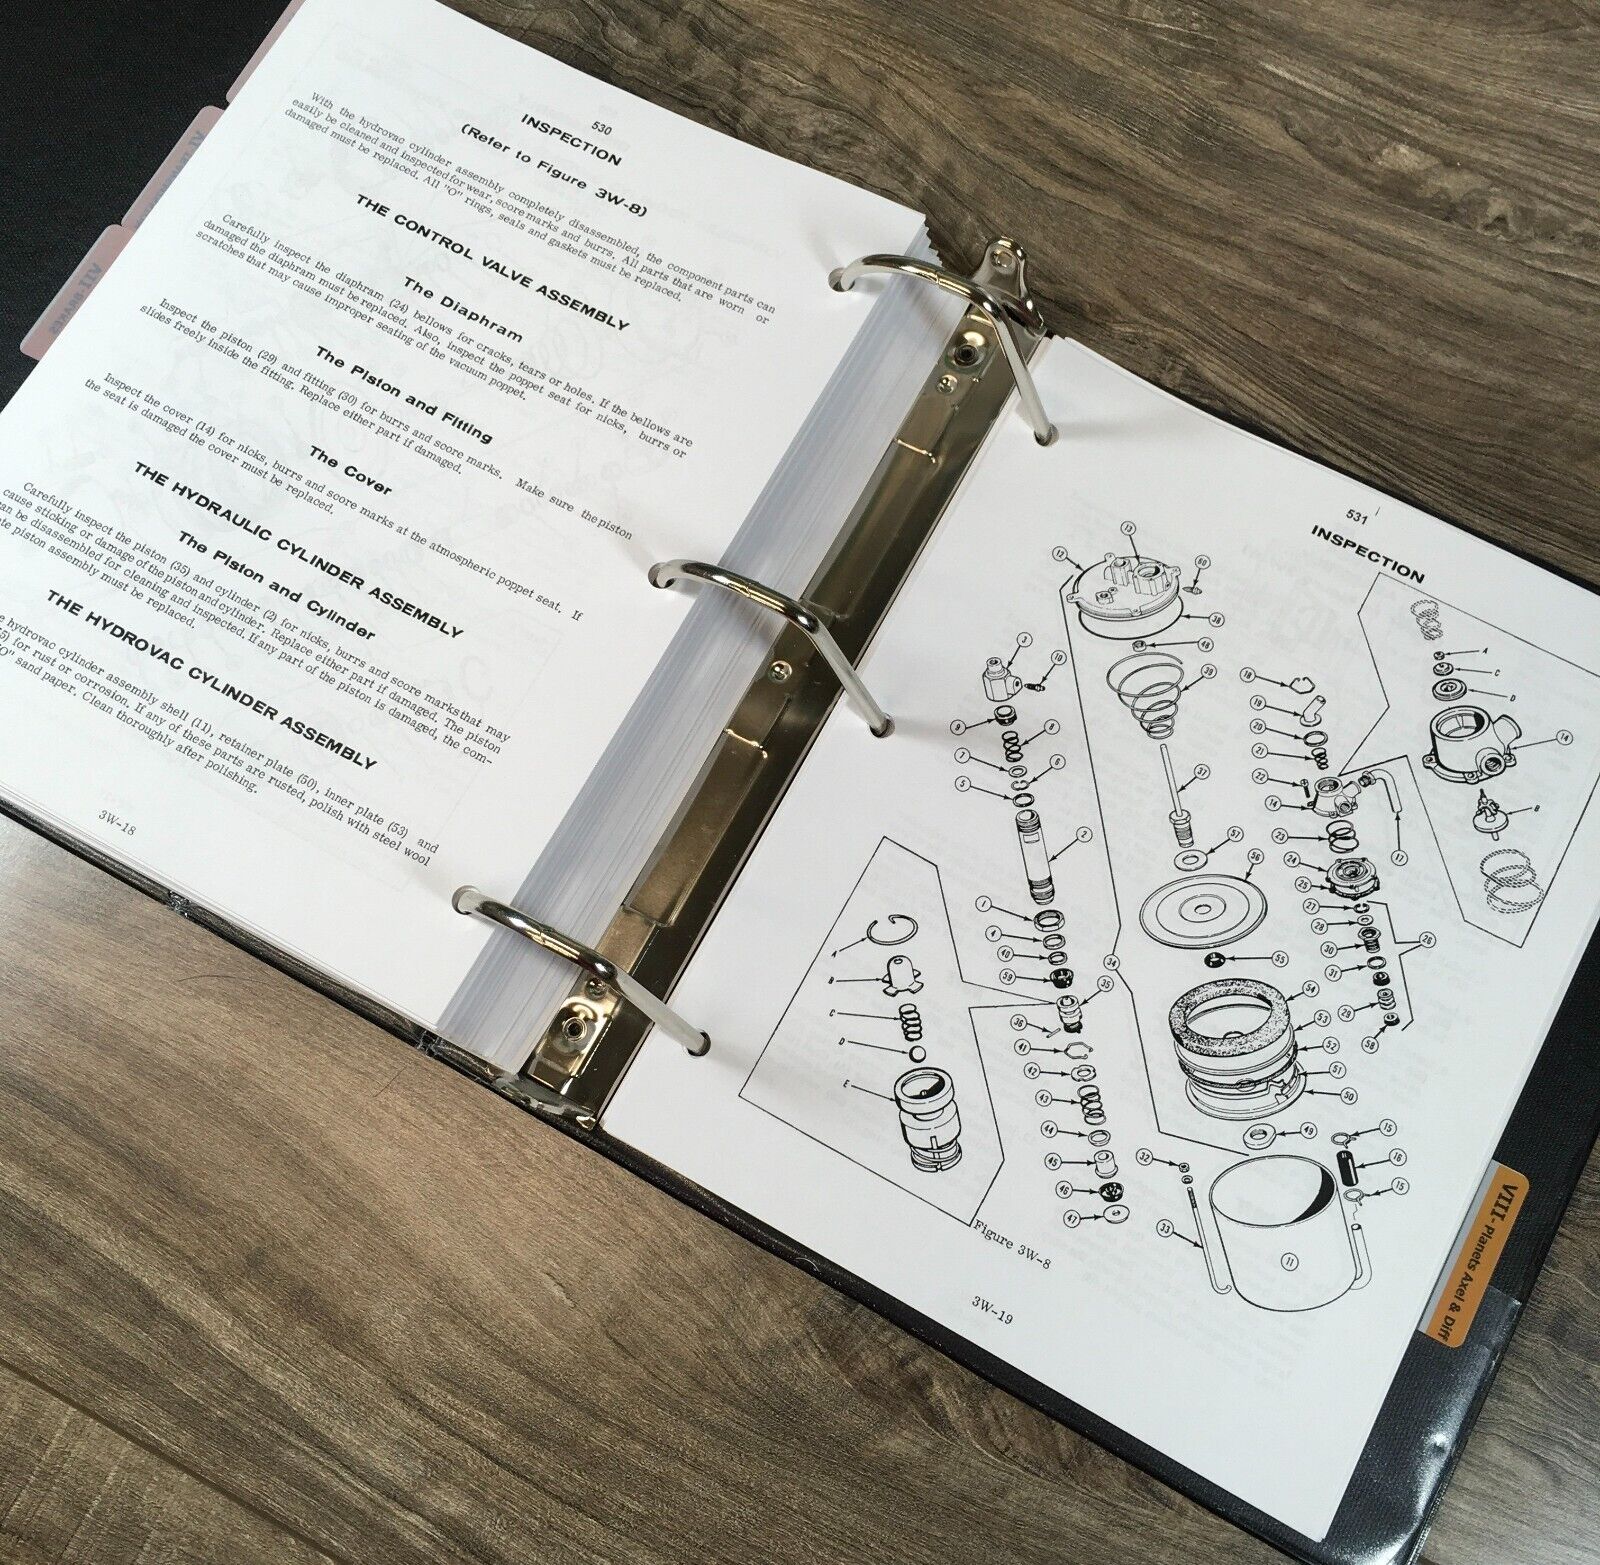 530
INSPECTION
(Refer to Figure 3W-8)
With the hydrovac cylinder assembly completely disassembled, the component parts can
easily be cleaned and inspected for wear, score marks and burrs. All parts that are worn or
damaged must be replaced. All "O" rings, seals and gaskets must be replaced.
THE CONTROL VALVE ASSEMBLY
The Diaphram
Carefully inspect the diaphram (24) bellows for cracks, tears or holes. If the bellows are
damaged the diaphram must be replaced. Also, inspect the poppet seat for nicks, burrs or
scratches that may cause improper seating of the vacuum poppet.
The Piston and Fitting
Inspect the piston (29) and fitting (30) for burrs and score marks. Make sure the piston
slides freely inside the fitting. Replace either part if damaged.
The Cover
Inspect the cover (14) for nicks, burrs and score marks at the atmospheric poppet seat. If
the seat is damaged the cover must be replaced.
THE HYDRAULIC CYLINDER ASSEMBLY
The Piston and Cylinder
Carefully inspect the piston (35) and cylinder (2) for nicks, burrs and score marks that may
cause sticking or damage of the piston and cylinder. Replace either part if damaged. The piston
can be disassembled for cleaning and inspected. If any part of the piston is damaged, the com-
piston assembly must be replaced.
THE HYDROVAC CYLINDER ASSEMBLY
hydrovac cylinder assembly shell (11), retainer plate (50), inner plate (53) and
for rust or corrosion. If any of these parts are rusted, polish with steel wool
"O" sand paper. Clean thoroughly after polishing.
3W-18
531
INSPECTION
13
12
60
38
48
3
10
39
18
19
9
8
20
7
6
21
5
22
37
14
2
17
23
57
24
56
25
1
27
28
26
4
30
40
34
31
55
59
35
54
29
36
53
58
41
52
42
51
43
50
44
49
15
32
45
16
46
15
47
33
11
A
C
D
14
B
A
B
C
D
E
Figure 3W-8
3W-19
VIII-Planets Axel & Diff